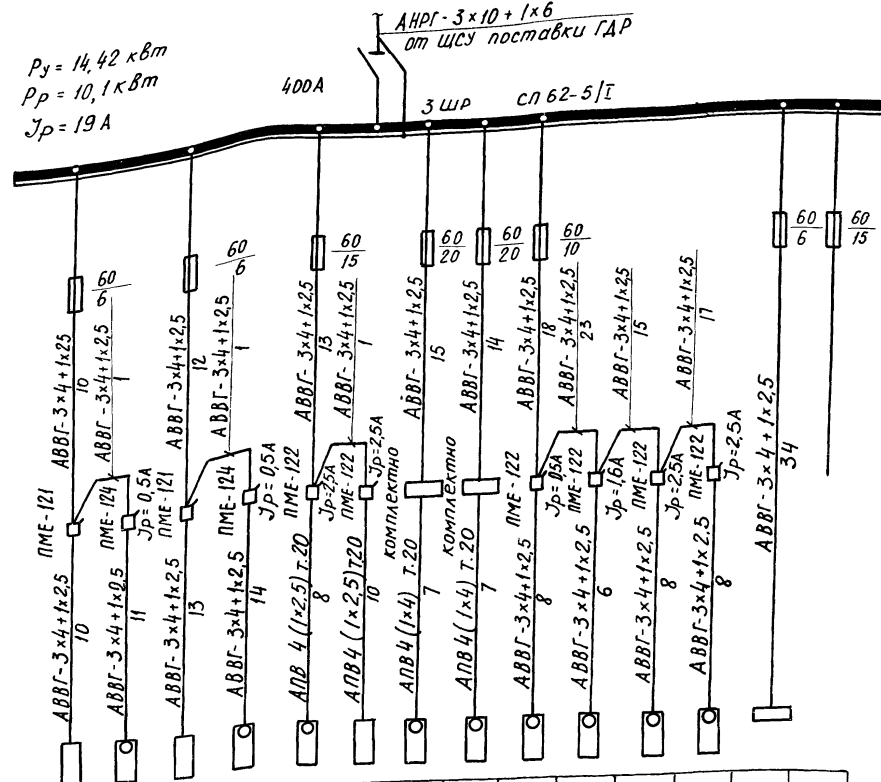 АНРГ-3×10+1×6
от ЩСУ поставки ГДР
Ру = 14,42 квт
Рр = 10,1 квт
Jр = 19 А
400А
3 ШР
СП 62-5/I
60/6
60/6
60/15
60/20
60/20
60/10
60/6
60/15
АВВГ-3×4+1×25
10
АВВГ-3×4+1×2,5
1
АВВГ-3×4+1×2,5
12
АВВГ-3×4+1×2,5
1
АВВГ-3×4+1×2,5
13
АВВГ-3×4+1×2,5
1
АВВГ-3×4+1×2,5
15
АВВГ-3×4+1×2,5
14
АВВГ-3×4+1×2,5
18
АВВГ-3×4+1×2,5
23
АВВГ-3×4+1×2,5
15
АВВГ-3×4+1×2,5
17
АВВГ-3×4+1×2,5
34
ПМЕ-121
ПМЕ-124
Jр=0,5А
ПМЕ-121
ПМЕ-124
Jр=0,5А
ПМЕ-122
Jр=2,5А
ПМЕ-122
Jр=2,5А
комплектно
комплектно
ПМЕ-122
Jр=0,5А
ПМЕ-122
Jр=1,6А
Jр=2,5А
ПМЕ-122
Jр=2,5А
АВВГ-3×4+1×2,5
10
АВВГ-3×4+1×2,5
11
АВВГ-3×4+1×2,5
13
АВВГ-3×4+1×2,5
14
АПВ 4(1×2,5) т.20
8
АПВ4(1×2,5)т20
10
АПВ4(1×4) т.20
7
АПВ4(1×4) т.20
7
АВВГ-3×4+1×2,5
8
АВВГ-3×4+1×2,5
6
АВВГ-3×4+1×2,5
8
АВВГ-3×4+1×2,5
8